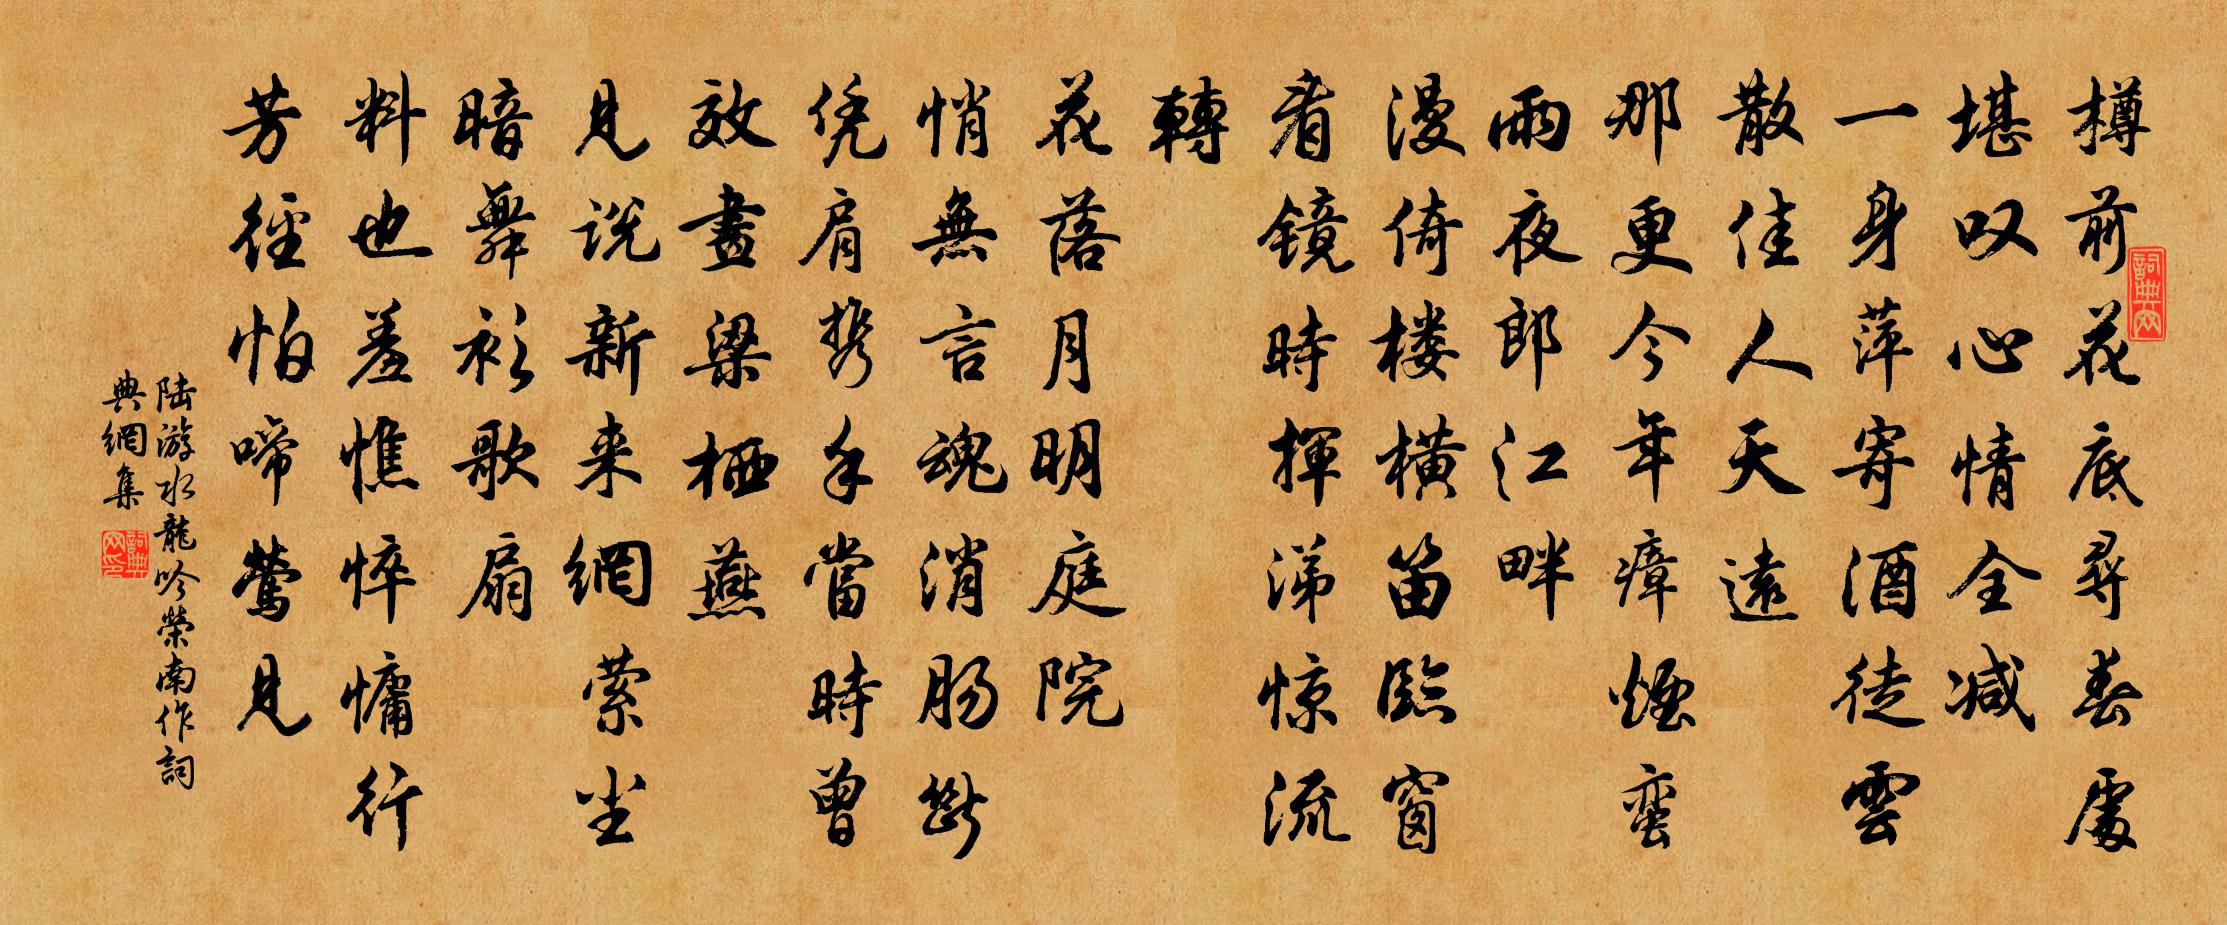 樽前花底尋春處
堪叹心情全减
一身萍寄酒徒雲
散佳人天遠
那更今年瘴煙蛮
雨夜郎江畔
漫倚楼橫笛臨窗
看镜時揮涕惊流
轉
花落月明庭院
悄無言魂消肠断
凭肩携手當時曾
效畫梁栖燕
見说新来網萦尘
暗舞衫歌扇
料也羞憔悴慵行
芳徑怕啼鶯見
陆游水龍吟榮南作詞
典網集
詞典网
詞典网印